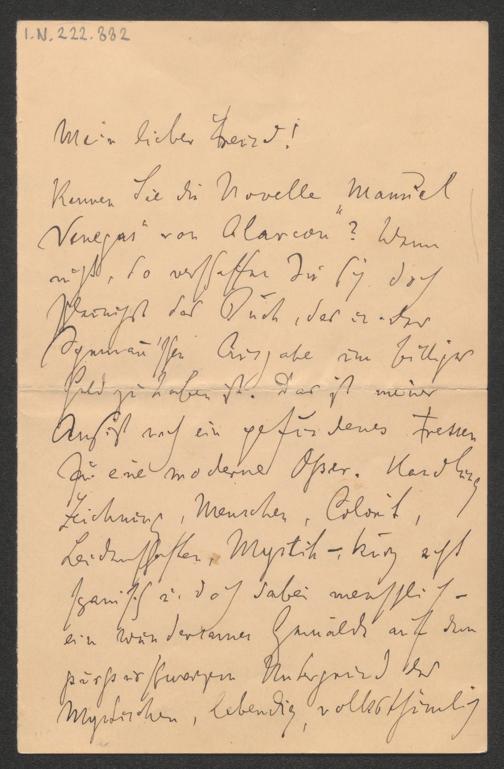 I.N. 222.882
Mein lieber Freund!
Kennen Sie die Novelle „Manuel
Venegas" von Alarcon"? Wenn
nicht, so verschaffen Sie sich doch
schleunigst das Buch, das in der
Ausgabe um billiges
Geld zu haben ist. Das ist meiner
Ansicht nach ein gefundenes Fressen
für eine moderne Oper. Handlung
Zeichnung, Menschen, Colorit,
Leidenschaften, Mystik – kurz echt
spanisch u. doch dabei menschlich –
ein wundersames Gemälde auf dem
Untergrund des
Mystischen, lebendig, volksthümlich